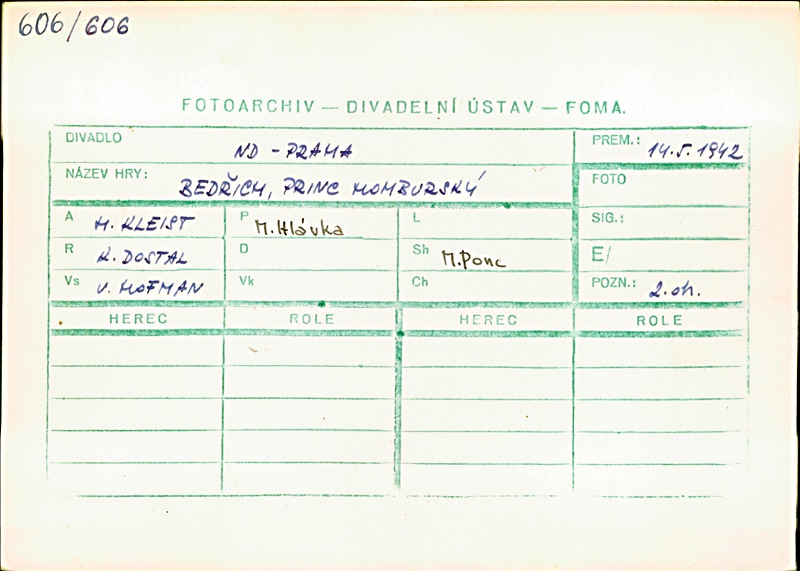 606/606
FOTOARCHIV — DIVADELNÍ ÚSTAV — FOMA.
DIVADLO ND - PRAHA PREM.: 14.5.1942
NÁZEV HRY: BEDŘICH, PRINC HOMBURSKÝ FOTO
A H. KLEIST P M. Hlávka L SIG.:
R K. DOSTAL D Sh M. Ponc E/
Vs V. HOFMAN Vk Ch POZN.: 2. oh.
HEREC ROLE HEREC ROLE